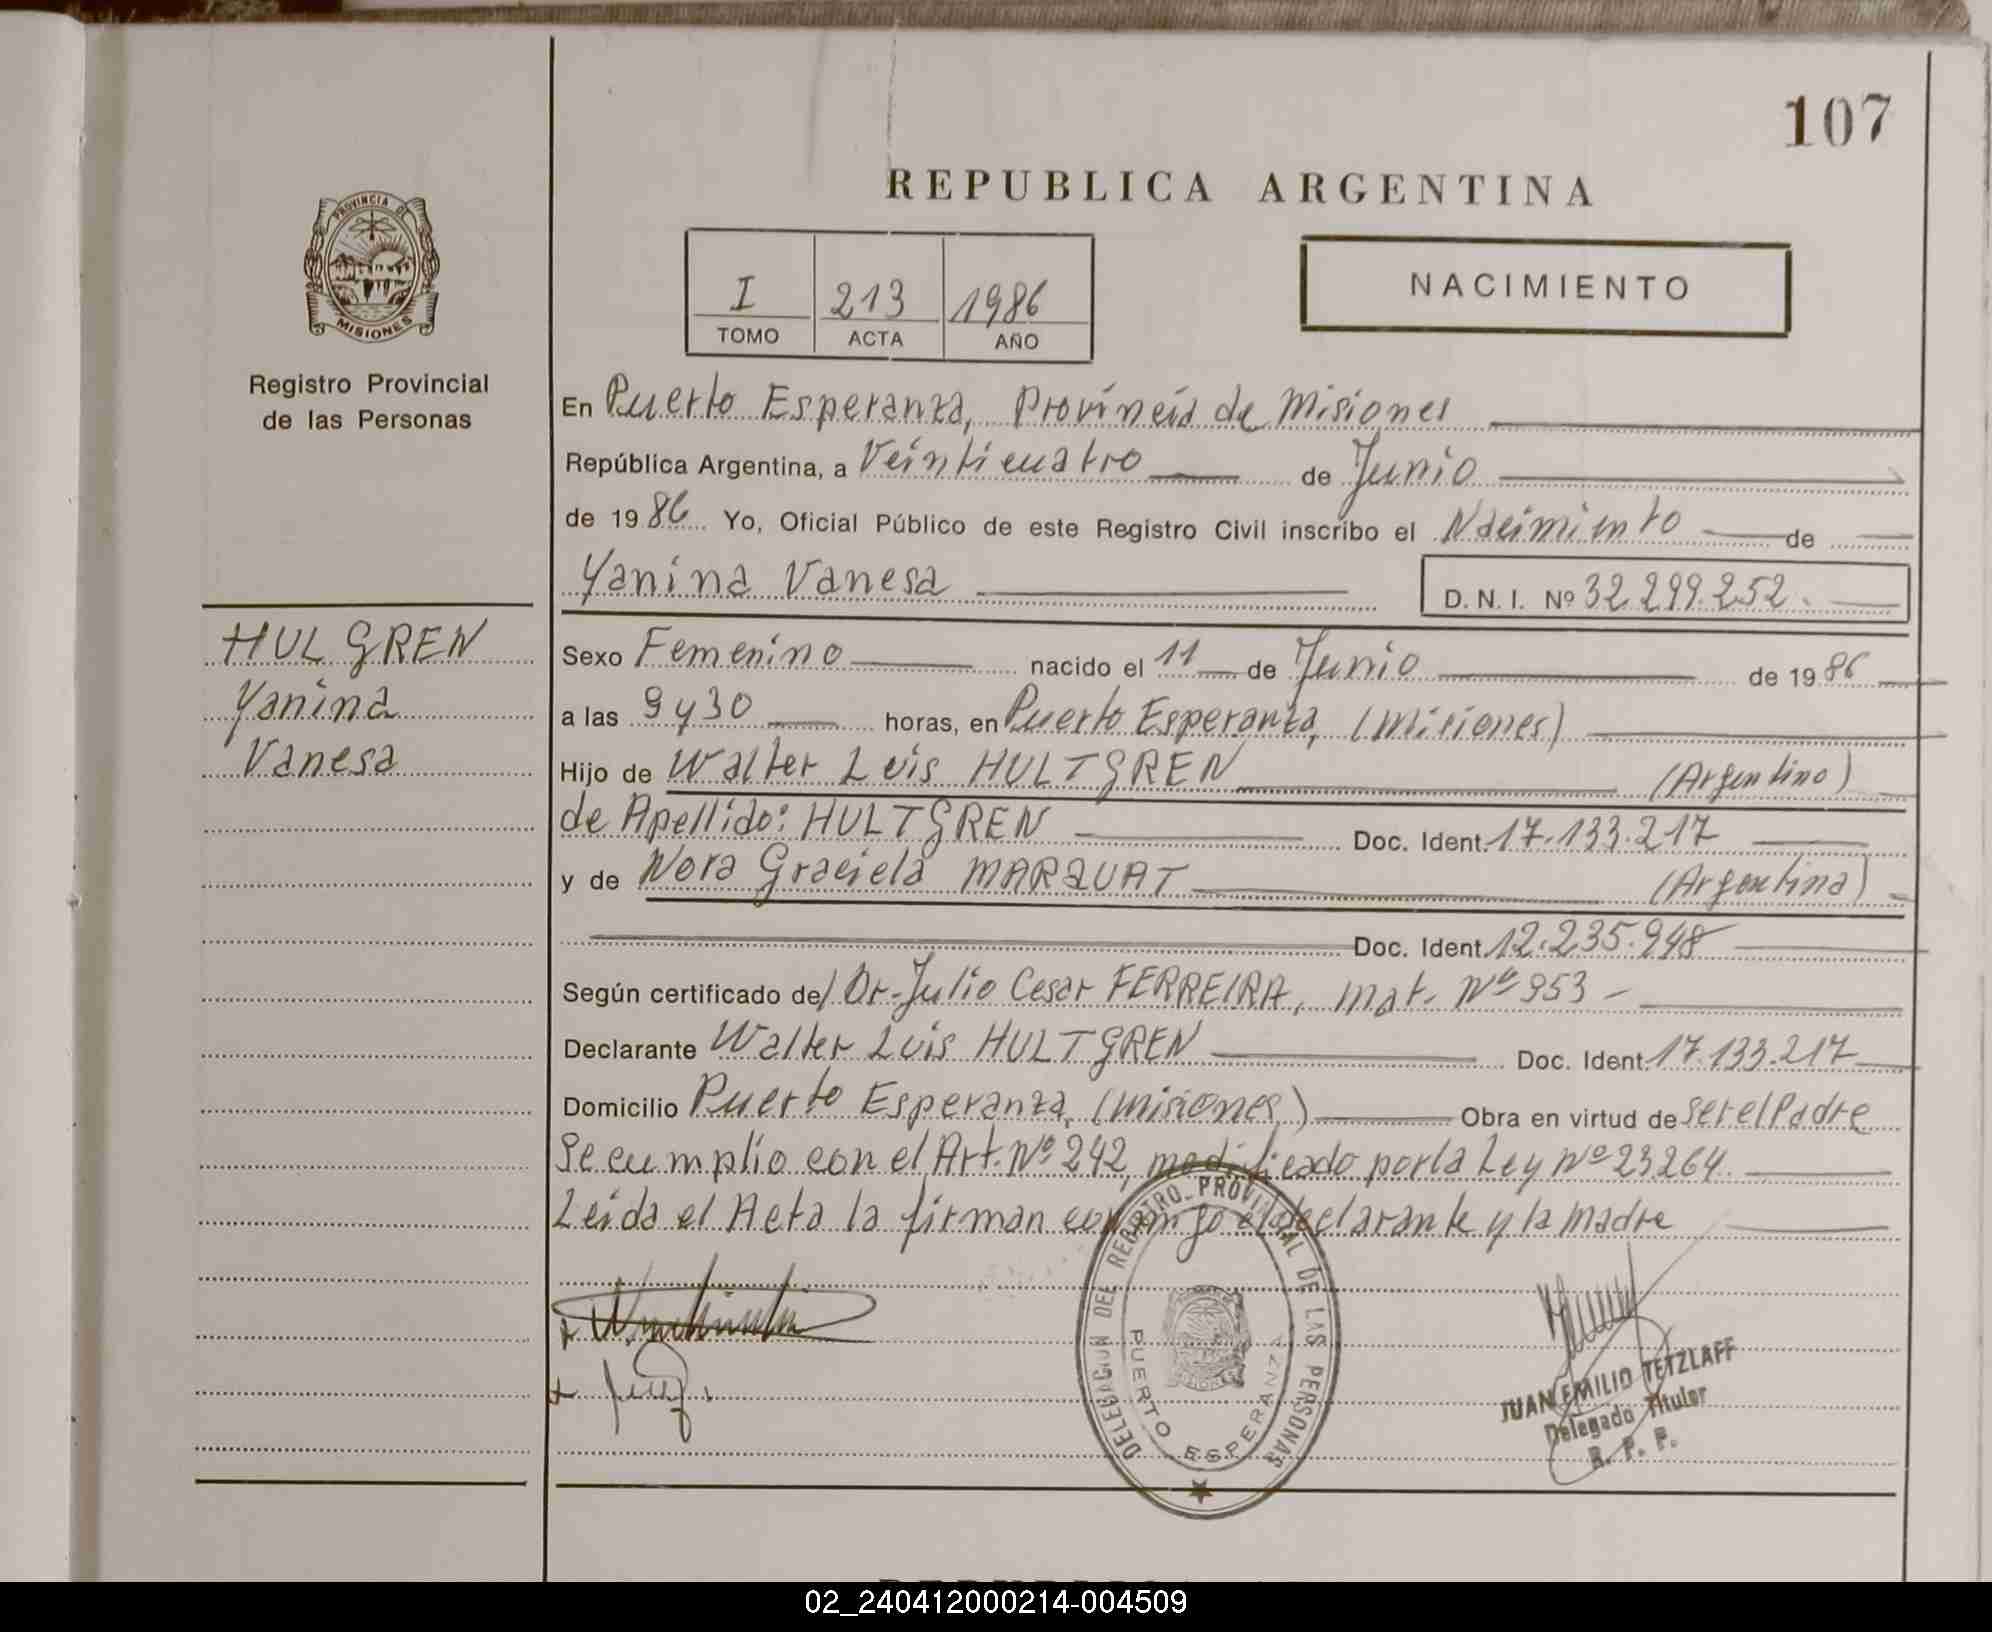 107
REPUBLICA ARGENTINA
PROVINCIA DE
MISIONES
Registro Provincial
de las Personas
I 213 1986
TOMO ACTA AÑO
NACIMIENTO
En Puerto Esperanza, Provincia de Misiones
República Argentina, a Veinticuatro de Junio
de 1986 Yo, Oficial Público de este Registro Civil inscribo el Nacimiento de
Yanina Vanesa D.N.I. Nº 32.299.252.
HULGREN
Yanina
Vanesa
Sexo Femenino nacido el 11 de Junio de 1986
a las 9 y 30 horas, en Puerto Esperanza, (Misiones)
Hijo de Walter Luis HULTGREN (Argentino)
de Apellido: HULTGREN Doc. Ident. 17.133.217
y de Nora Graciela MARQUAT (Argentina)
Doc. Ident. 12.235.948
Según certificado de/ Dr. Julio Cesar FERREIRA, Mat. Nº 953 -
Declarante Walter Luis HULTGREN Doc. Ident. 17.133.217
Domicilio Puerto Esperanza, (Misiones) Obra en virtud de ser el Padre
Se cumplio con el Art. Nº 242, modificado por la Ley Nº 23264.
Leida el Acta la firman conmigo el declarante y la madre
DELEGACION DEL REGISTRO PROVINCIAL DE LAS PERSONAS
PUERTO ESPERANZA
JUAN EMILIO TETZLAFF
Delegado Titular
R. P. P.
02_240412000214-004509